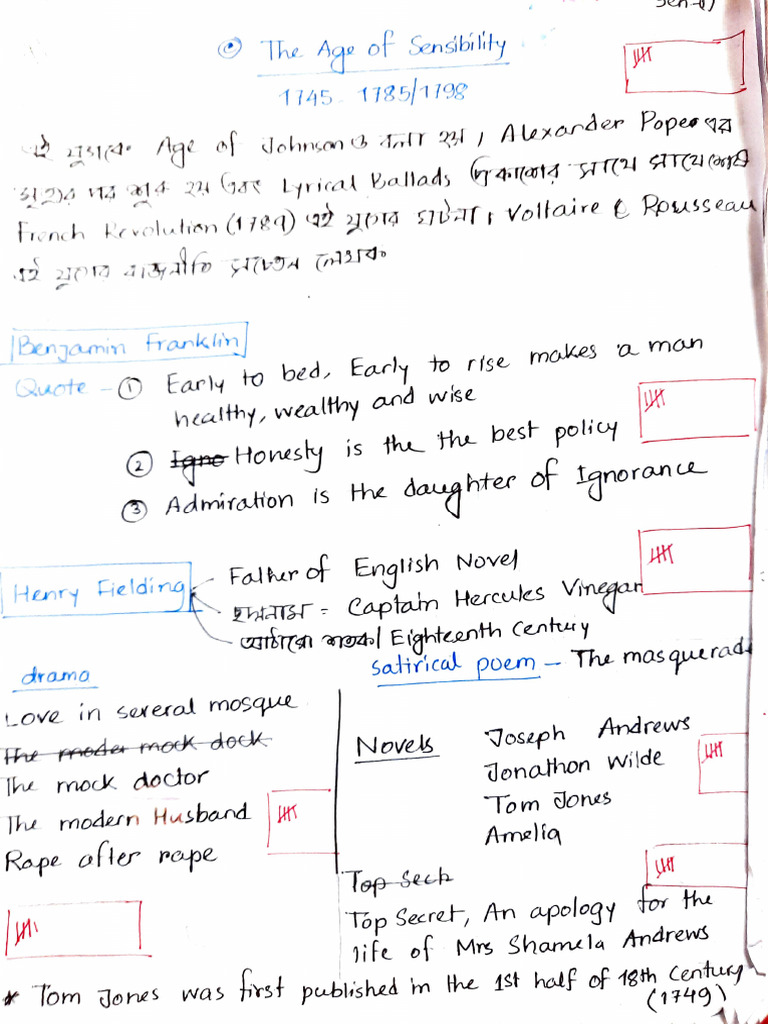 The Age of Sensibility
1745 - 1785/1798
এই যুগকে Age of Johnson ও বলা হয়। Alexander Pope এর
মৃত্যুর পর শুরু হয় এবং Lyrical Ballads প্রকাশের সাথে সাথে শেষ
French Revolution (1789) এই যুগের ঘটনা। Voltaire & Rousseau
এই যুগের রাজনীতি সচেতন লেখক
Benjamin Franklin
Quote - ① Early to bed, Early to rise makes a man
healthy, wealthy and wise
② Igno Honesty is the the best policy
③ Admiration is the daughter of Ignorance
Henry Fielding
Father of English Novel
ছদ্মনাম = Captain Hercules Vinegar
আঠারো শতক/ Eighteenth Century
drama
satirical poem - The masquerade
Love in several mosque
The moder mock dock
The mock doctor
The modern Husband
Rape after rape
Novels Joseph Andrews
Jonathon Wilde
Tom Jones
Amelia
Top Sech
Top Secret, An apology for the
life of Mrs Shamela Andrews
* Tom Jones was first published in the 1st half of 18th Century
(1749)